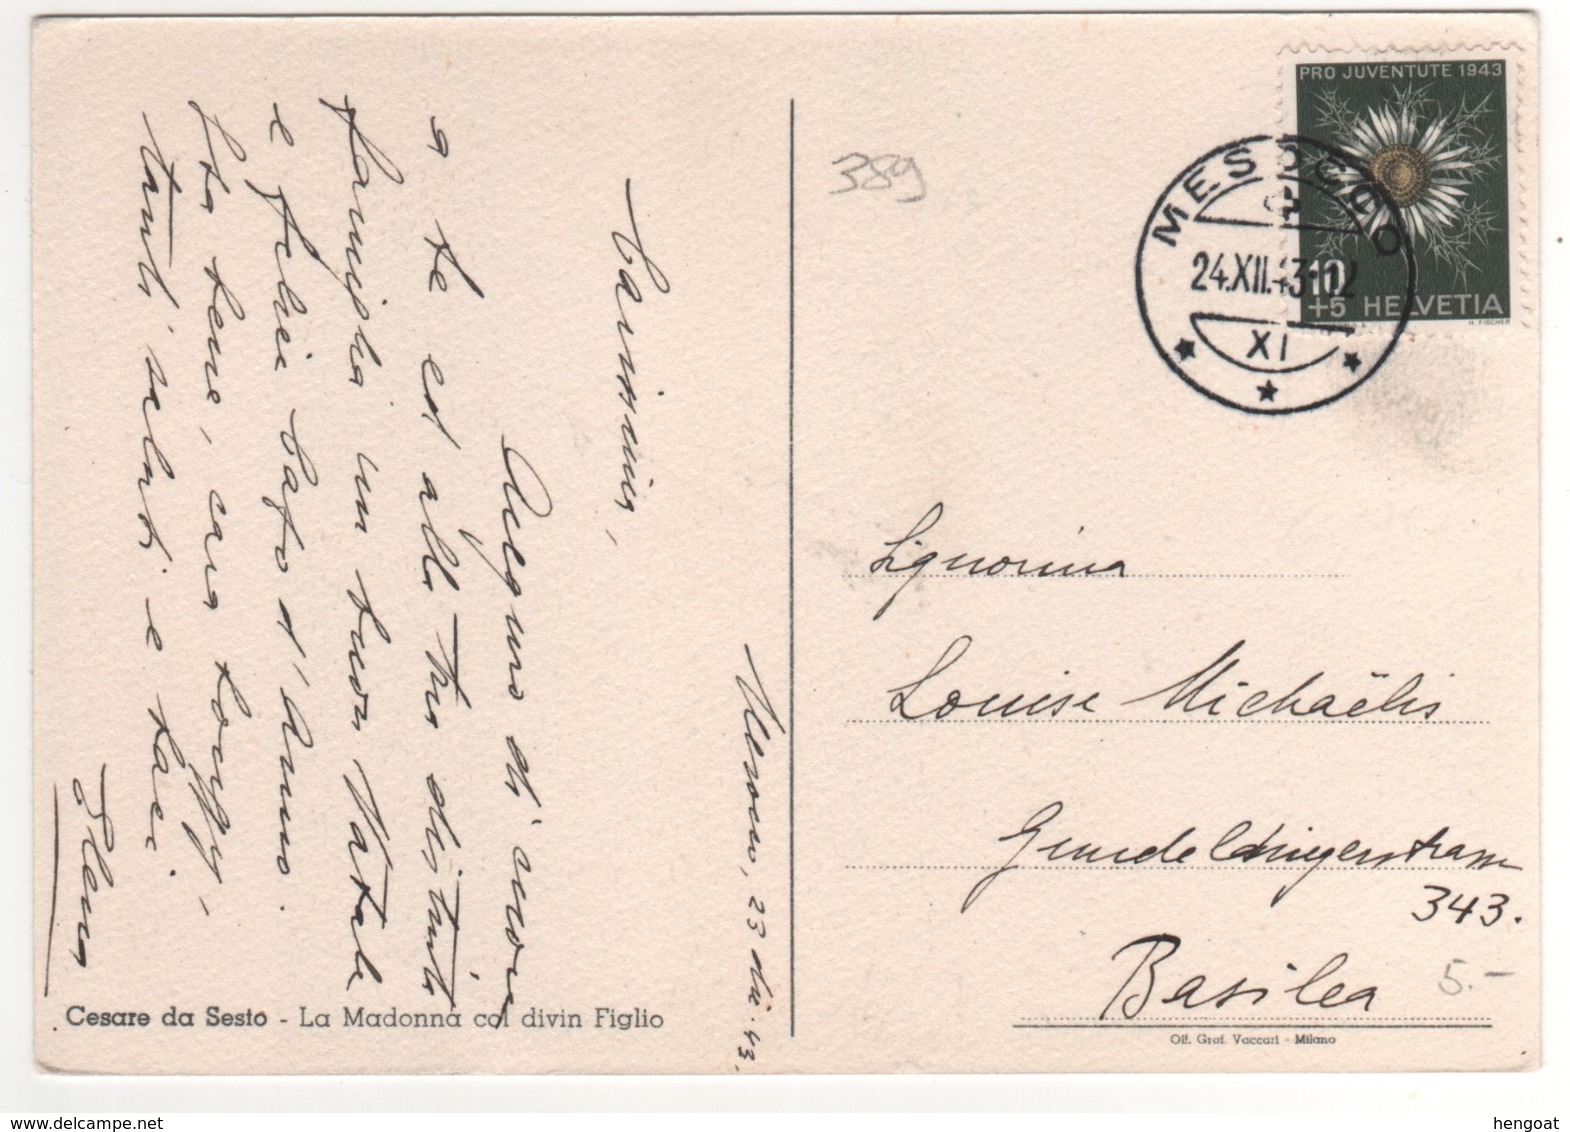 Mesocco, 23 dic. 43.
Carissima,
Auguro di cuore
a te ed alla tua distinta
famiglia un buon Natale
e felice Capo d'Anno.
Sta bene, cara
tanti saluti e baci
Elena
Cesare da Sesto - La Madonna col divin Figlio
389
PRO JUVENTUTE 1943
10
+5 HELVETIA
H. FISCHER
MESOCCO
24.XII.43-12
XI
Signorina
Louise Michaëlis
Gundeldingerstrasse
343.
Basilea
5.-
Off. Graf. Vaccari - Milano
hengoat